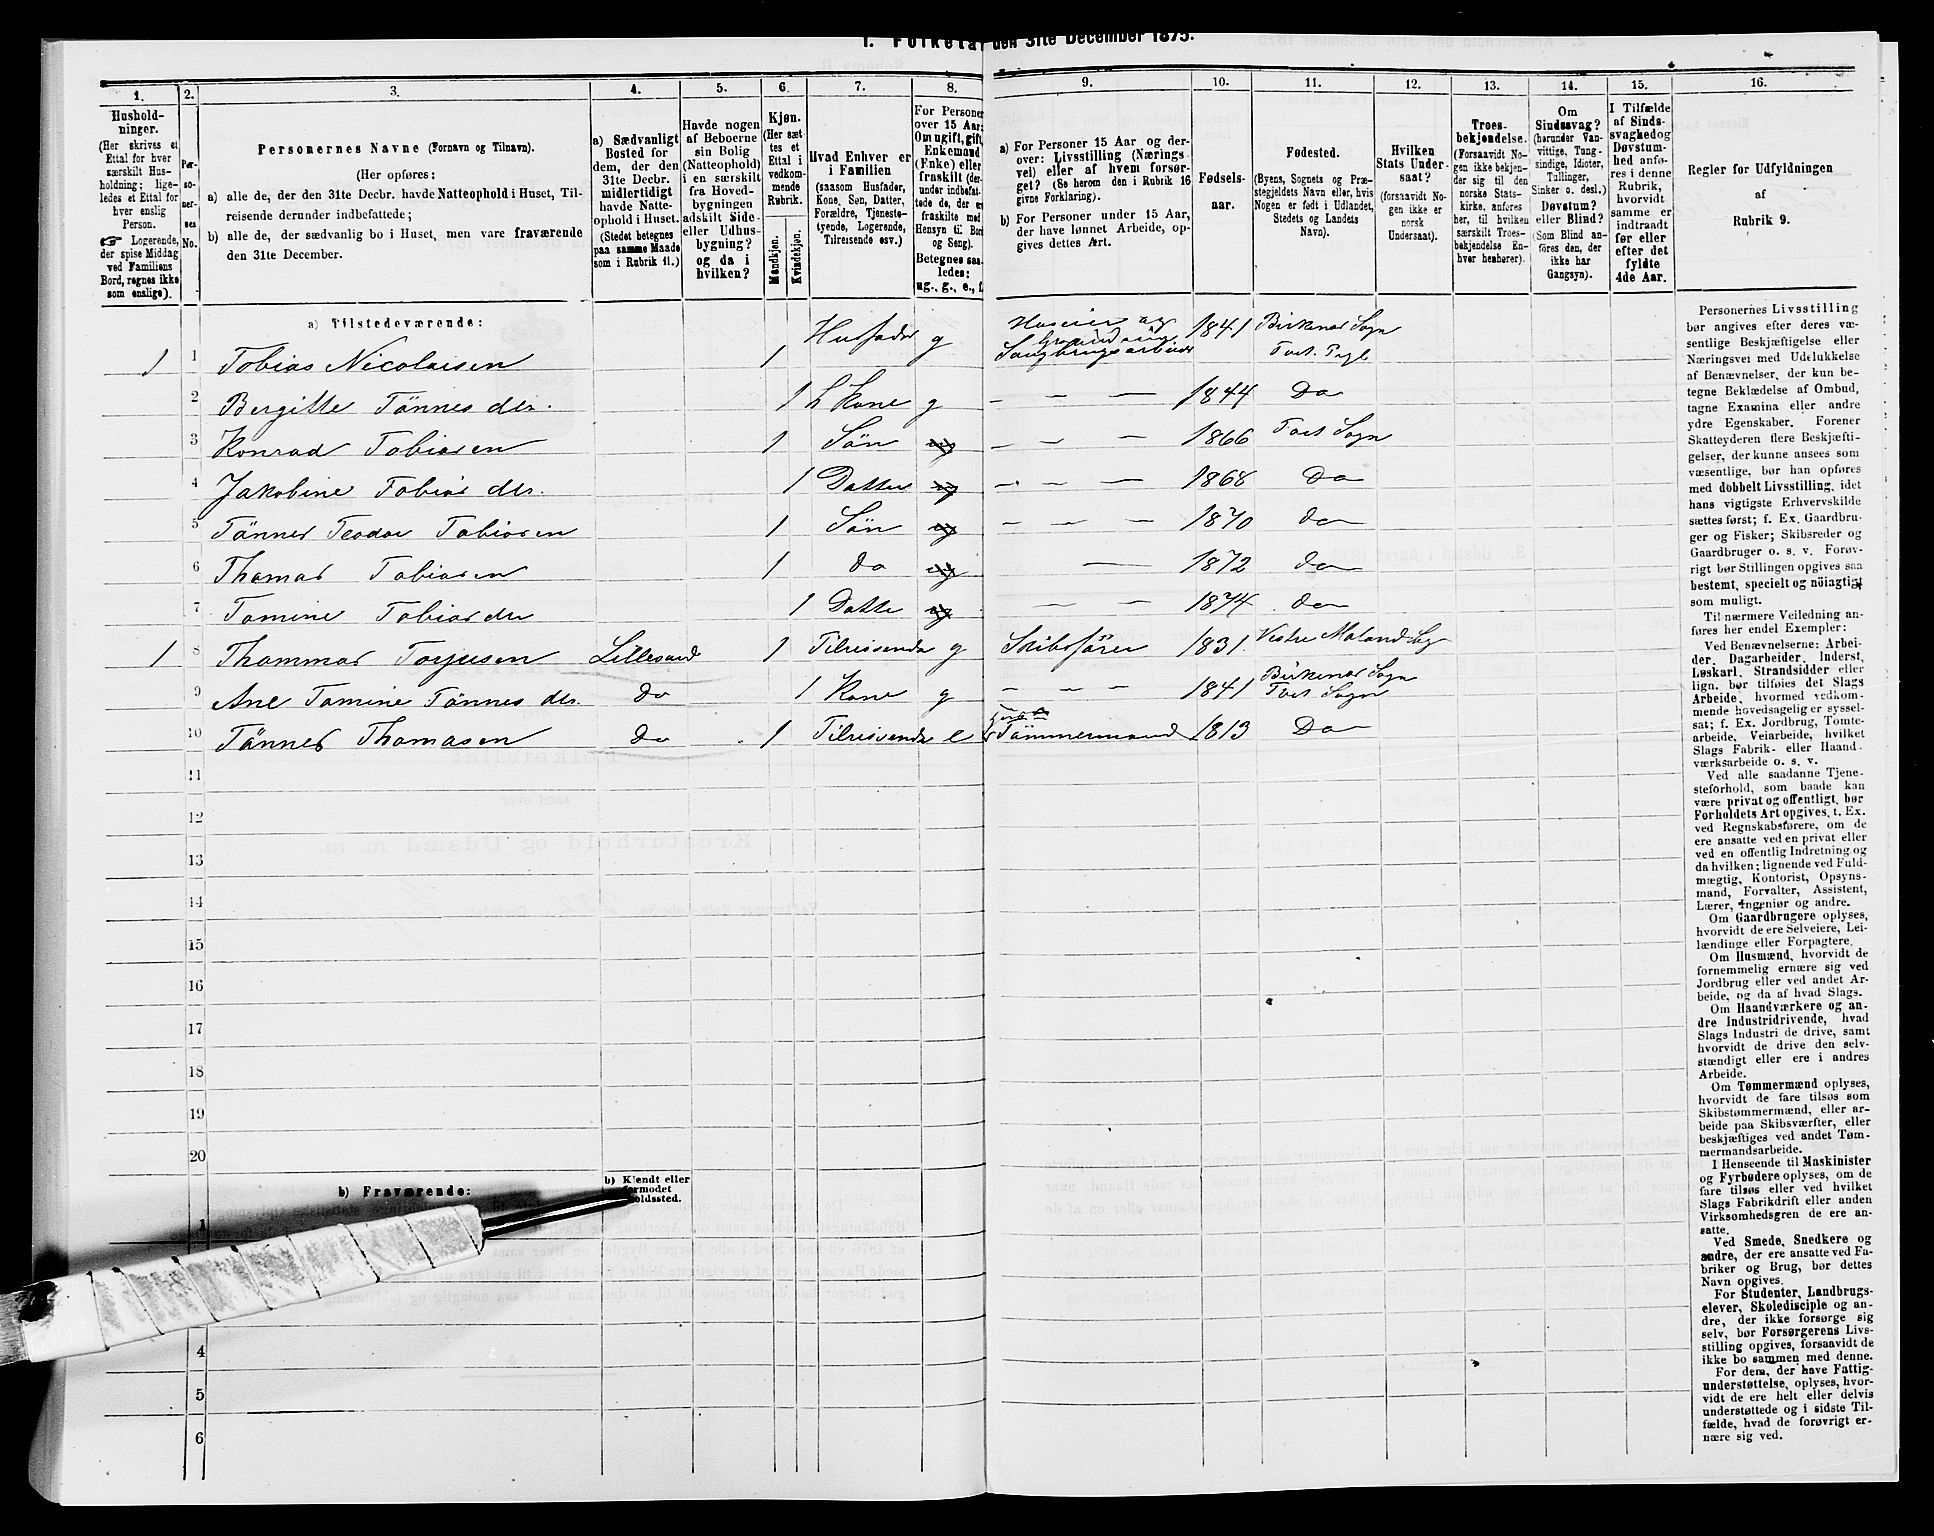 1. Folketal den 31te December 1875.
1. 2. 3. 4. 5. 6. 7. 8. 9. 10. 11. 12. 13. 14. 15. 16.
Hushold-
ninger.
(Her skrives et
Ettal for hver
særskilt Hus-
holdning; lige-
ledes et Ettal for
hver enslig
Person.
☞ Logerende,
der spise Middag
ved Familiens
Bord, regnes ikke
som enslige).
Per-
so-
ner-
nes
No.
Personernes Navne (Fornavn og Tilnavn).
(Her opføres:
a) alle de, der den 31te Decbr. havde Natteophold i Huset, Til-
reisende derunder indbefattede;
b) alle de, der sædvanlig bo i Huset, men vare fraværende
den 31te December.
a) Sædvanligt
Bosted for
dem, der den
31te Decbr.
midlertidigt
havde Natte-
ophold i Huset.
(Stedet betegnes
paa samme Maade
som i Rubrik 11.)
Havde nogen
af Beboerne
sin Bolig
(Natteophold)
i en særskilt
fra Hoved-
bygningen
adskilt Side-
eller Udhus-
bygning?
og da i
hvilken?
Kjøn.
(Her sæt-
tes et
Ettal i
vedkom-
mende
Rubrik.
Mandkjøn.
Kvindekjøn.
Hvad Enhver er
i Familien
(saasom Husfader,
Kone, Søn, Datter,
Forældre, Tjeneste-
tyende, Logerende,
Tilreisende osv.)
For Personer
over 15 Aar:
Om ugift, gift,
Enkemand
(Enke) eller
fraskilt (der-
under indbefat-
tede de, der ere
fraskilte med
Hensyn til Bord
og Seng).
Betegnes saa-
ledes:
ug., g., e., f.
a) For Personer 15 Aar og der-
over: Livsstilling (Nærings-
vei) eller af hvem forsør-
get? (Se herom den i Rubrik 16
givne Forklaring).
b) For Personer under 15 Aar,
der have lønnet Arbeide, op-
gives dettes Art.
Fødsels-
aar.
Fødested.
(Byens, Sognets og Præ-
stegjeldets Navn eller, hvis
Nogen er født i Udlandet,
Stedets og Landets
Navn).
Hvilken
Stats Under-
saat?
(forsaavidt No-
gen ikke er
norsk
Undersaat).
Troes-
bekjendelse.
(Forsaavidt No-
gen ikke bekjen-
der sig til den
norske Stats-
kirke, anføres
her, til hvilken
særskilt Troes-
bekjendelse En-
hver henhører).
Om
Sindssvag?
(herunder Van-
vittige, Tung-
sindige, Idioter,
Tullinger,
Sinker o. desl.)
Døvstum?
eller Blind?
(Som Blind an-
føres den, der
ikke har
Gangsyn).
I Tilfælde
af Sinds-
svaghed og
Døvstum-
hed anfø-
res i denne
Rubrik,
hvorvidt
samme er
indtraadt
før eller
efter det
fyldte
4de Aar.
Regler for Udfyldningen
af
Rubrik 9.
a) Tilstedeværende:
1 1 Tobias Nicolaisen 1 Husfader g Huseier og Sangbrugsarbeider 1841 Birkenes Sogn Tvet
2 Bergitte Tönnes dtr. 1 Kone g – – – 1844 Do
3 Konrad Tobiasen 1 Sön ug – – – 1866 Tvet Sogn
4 Jakobine Tobias dtr. 1 Datter ug – – – 1868 Do
5 Tönnes Teodor Tobiasen 1 Sön ug – – – 1870 do
6 Thomas Tobiasen 1 do ug – 1872 do
7 Tomine Tobias dtr 1 Datte ug – – 1874 do
1 8 Thommas Torjusen Lillesand 1 Tilreisende g Skibsförer 1831 Vestre Moland Sogn
9 Ane Tomine Tönnes dtr. do 1 Kone g – – – 1841 Birkenes Sogn Tvet Sogn
10 Tönnes Thomasen do 1 Tilreisende e Tömmermand 1813 Do
11
12
13
14
15
16
17
18
19
20
b) Fraværende:
b) Kjendt eller
formodet
Opholdssted.
1
4
5
6
Personernes Livsstilling
bør angives efter deres væ-
sentlige Beskjæftigelse eller
Næringsvei med Udelukkelse
af Benævnelser, der kun be-
tegne Beklædelse af Ombud,
tagne Examina eller andre
ydre Egenskaber. Forener
Skatteyderen flere Beskjæfti-
gelser, der kunne ansees som
væsentlige, bør han opføres
med dobbelt Livsstilling, idet
hans vigtigste Erhvervskilde
sættes først; f. Ex. Gaardbru-
ger og Fisker; Skibsreder og
Gaardbruger o. s. v. Forøv-
rigt bør Stillingen opgives saa
bestemt, specielt og nöiagtigt
som muligt.
Til nærmere Veiledning an-
føres her endel Exempler:
Ved Benævnelserne: Arbei-
der, Dagarbeider, Inderst,
Løskarl, Strandsidder eller
lign. bør tilføies det Slags
Arbeide, hvormed vedkom-
mende hovedsagelig er syssel-
sat; f. Ex. Jordbrug, Tomte-
arbeide, Veiarbeide, hvilket
Slags Fabrik- eller Haand-
værksarbeide o. s. v.
Ved alle saadanne Tjene-
steforhold, som baade kan
være privat og offentligt, bør
Forholdets Art opgives, t. Ex.
ved Regnskabsførere, om de
ere ansatte ved en privat eller
ved en offentlig Indretning og
da hvilken; lignende ved Fuld-
mægtig, Kontorist, Opsyns-
mand, Forvalter, Assistent,
Lærer, Ingeniør og andre.
Om Gaardbrugere oplyses,
hvorvidt de ere Selveiere, Lei-
lændinge eller Forpagtere.
Om Husmænd, hvorvidt de
fornemmelig ernære sig ved
Jordbrug eller ved andet Ar-
beide, og da af hvad Slags.
Om Haandværkere og an-
dre Industridrivende, hvad
Slags Industri de drive, samt
hvorvidt de drive den selv-
stændigt eller ere i andres
Arbeide.
Om Tømmermænd oplyses,
hvorvidt de fare tilsøs som
Skibstømmermænd, eller ar-
beide paa Skibsværfter, eller
beskjæftiges ved andet Tøm-
mermandsarbeide.
I Henseende til Maskinister
og Fyrbødere oplyses, om de
fare tilsøs eller ved hvilket
Slags Fabrikdrift eller anden
Virksomhedsgren de ere an-
satte.
Ved Smede, Snedkere og
andre, der ere ansatte ved Fa-
briker og Brug, bør dettes
Navn opgives.
For Studenter, Landbrugs-
elever, Skoledisciple og an-
dre, der ikke forsørge sig
selv, bør Forsørgerens Livs-
stilling opgives, forsaavidt de
ikke bo sammen med denne.
For dem, der have Fattig-
understøttelse, oplyses, hvor-
vidt de ere helt eller delvis
understøttede og i sidste Til-
fælde, hvad de forøvrigt er-
nære sig ved.